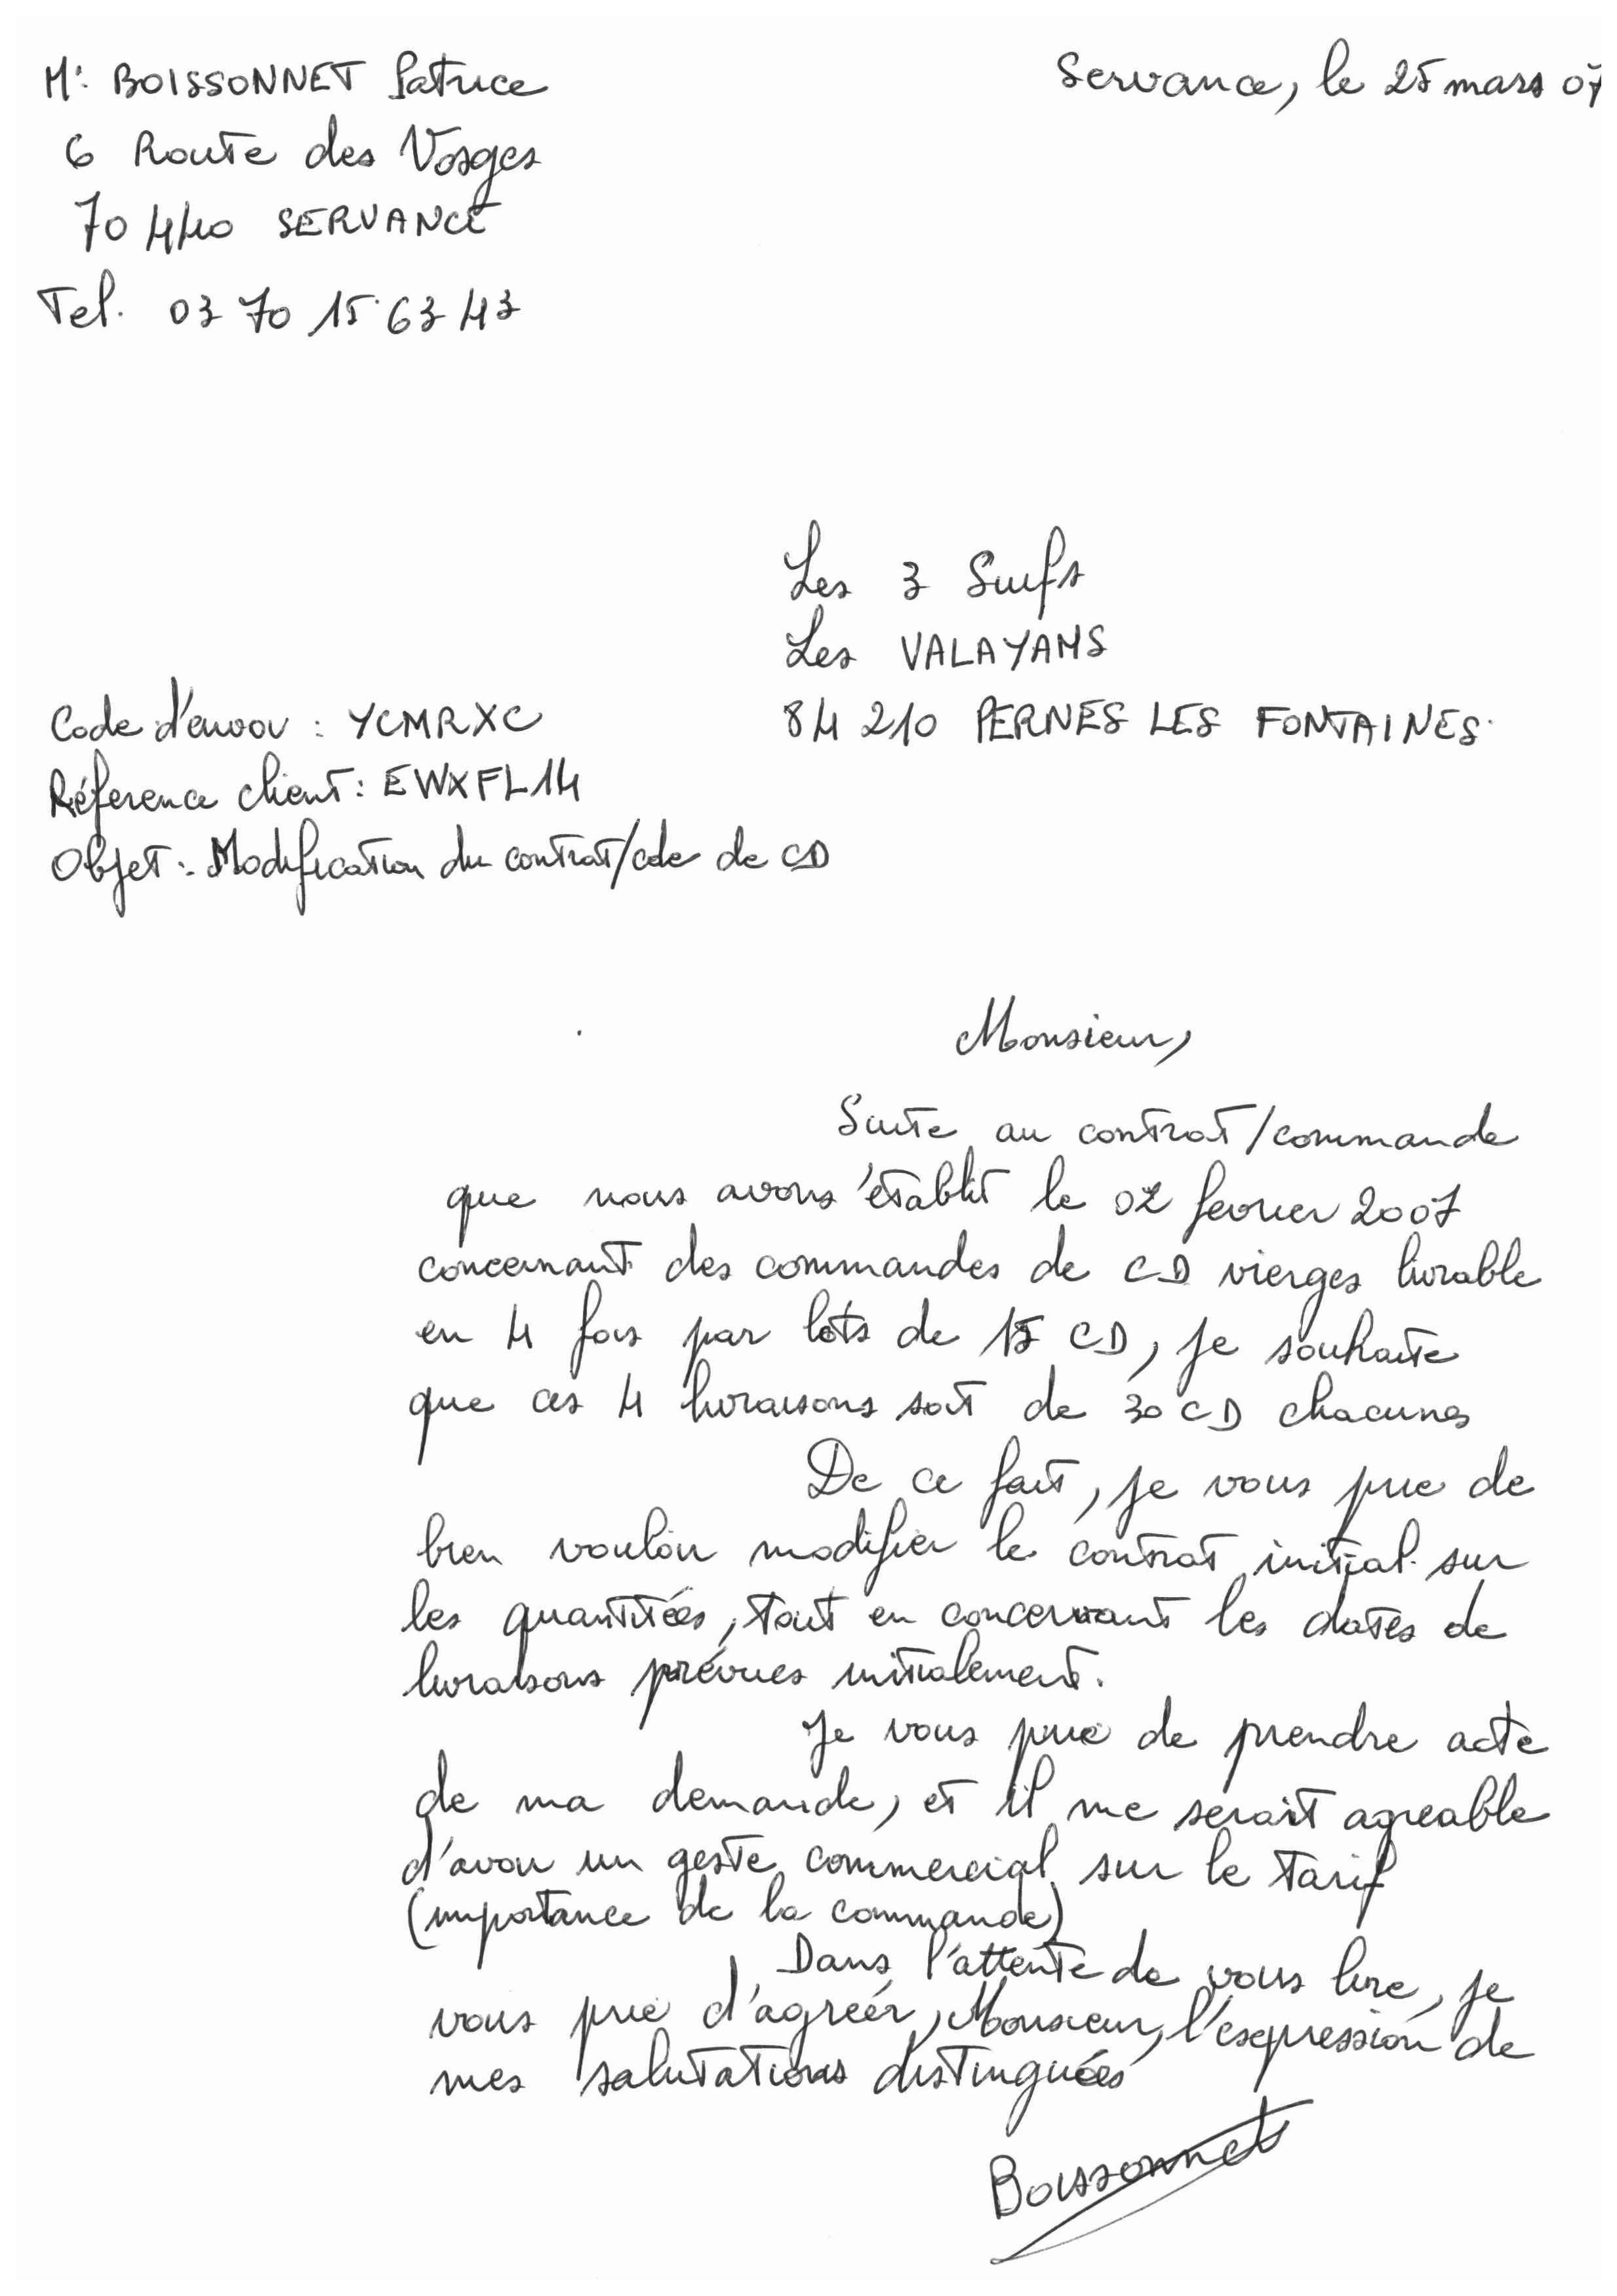 Mr BOISSONNET Patrice
Servance, le 25 mars 07
6 Route des Vosges
70440 SERVANCE
Tel. 03 70 15 63 43
Les 3 Suifs
Les VALAYANS
84 210 PERNES LES FONTAINES
Code d'envoi : YCMRXC
Réference client : EWXFL14
Objet : Modification du contrat/cde de CD
Monsieur,
Suite au contrat/commande
que nous avons établit le 02 fevrier 2007
concernant des commandes de CD vierges livrable
en 4 fois par lots de 15 CD, je souhaite
que ces 4 livraisons soit de 30 CD chacunes
De ce fait, je vous prie de
bien vouloir modifier le contrat initial sur
les quantitées, tout en concervant les dates de
livraisons prévues initialement.
Je vous prie de prendre acte
de ma demande, et il me serait agreable
d'avoir un geste commercial sur le tarif
(importance de la commande)
Dans l'attente de vous lire, je
vous prie d'agréer, Monsieur, l'expression de
mes salutations distinguées
Boissonnet